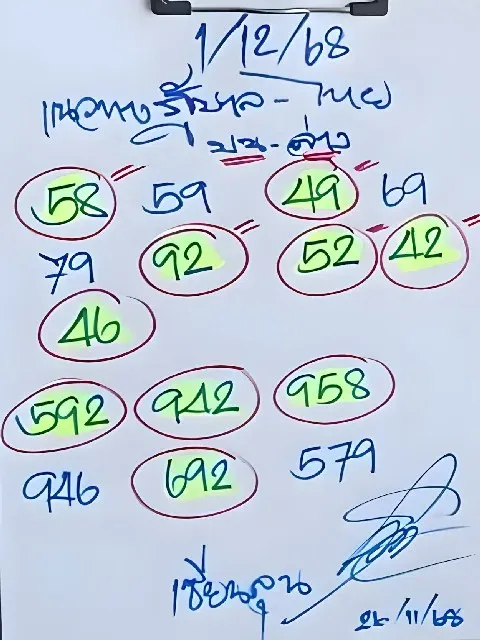 1/12/68
แนวทางรัฐบาล - ไทย
บน - ล่าง
58 59 49 69
79 92 52 42
46
592 942 958
946 692 579
เซียนลุน
/11/68